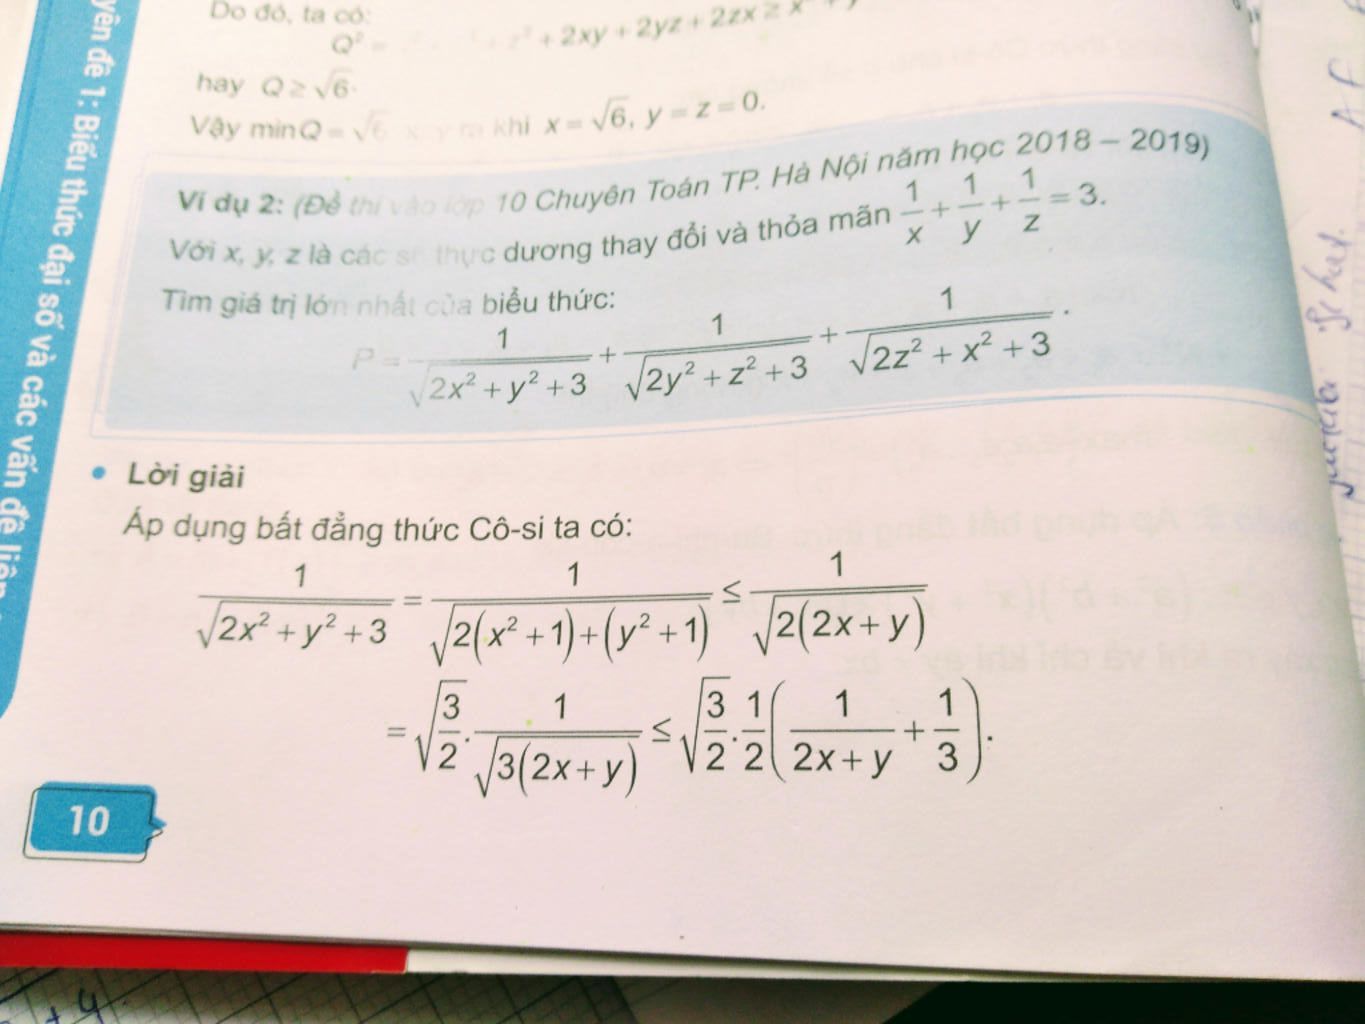 Do đó, ta có:
Q² = + 2xy + 2yz + 2zx ≥ x²
hay Q ≥ √6.
Vậy minQ = √6 xảy ra khi x = √6, y = z = 0.
Ví dụ 2: (Đề thi vào lớp 10 Chuyên Toán TP. Hà Nội năm học 2018 – 2019)
Với x, y, z là các số thực dương thay đổi và thỏa mãn 1/x + 1/y + 1/z = 3.
Tìm giá trị lớn nhất của biểu thức:
P = 1/√(2x² + y² + 3) + 1/√(2y² + z² + 3) + 1/√(2z² + x² + 3).
• Lời giải
Áp dụng bất đẳng thức Cô-si ta có:
1/√(2x² + y² + 3) = 1/√(2(x² + 1) + (y² + 1)) ≤ 1/√(2(2x + y))
= √(3/2) . 1/√(3(2x + y)) ≤ √(3/2) . 1/2 (1/(2x + y) + 1/3).
10
yên đề 1: Biểu thức đại số và các vấn đề liên